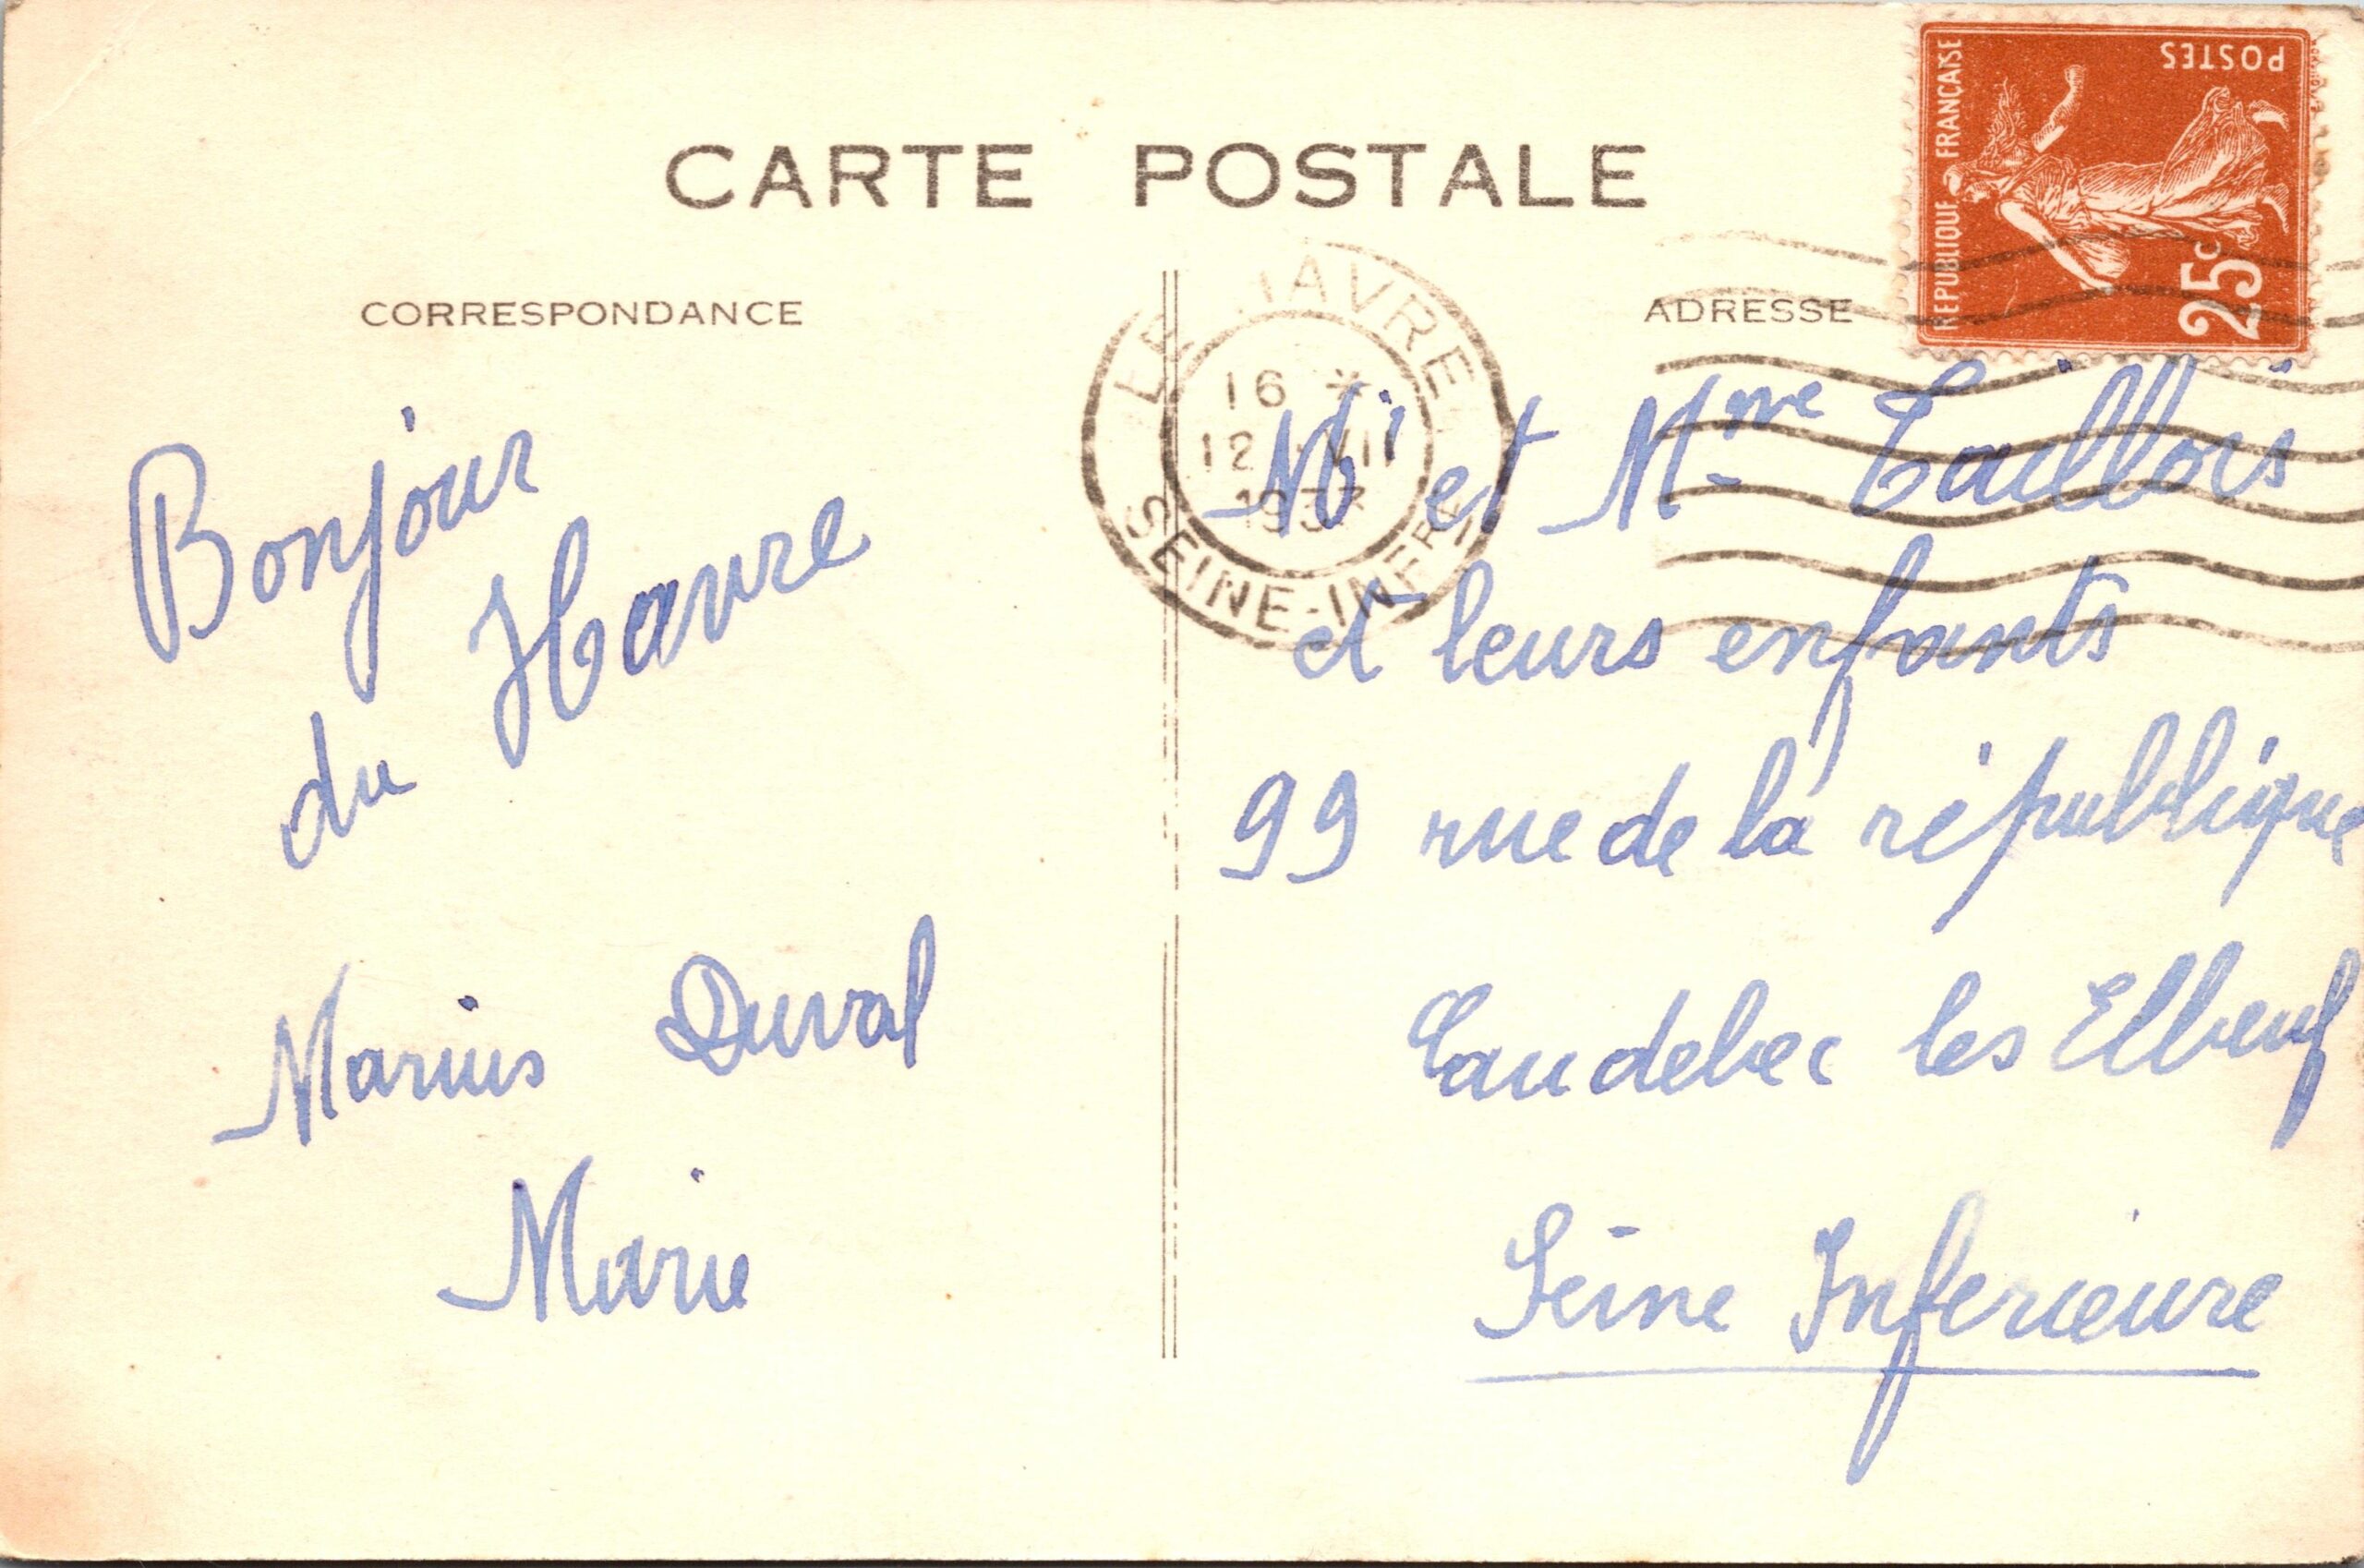 CARTE POSTALE
CORRESPONDANCE
ADRESSE
REPUBLIQUE FRANÇAISE
POSTES
25c
LE HAVRE
16 *
12 VII
SEINE-INFRE
Bonjour
du Havre
Marius Duval
Marie
Mr et Mme Taillois
et leurs enfants
99 rue de la république
Caudebec les Elbeuf
Seine Inferieure